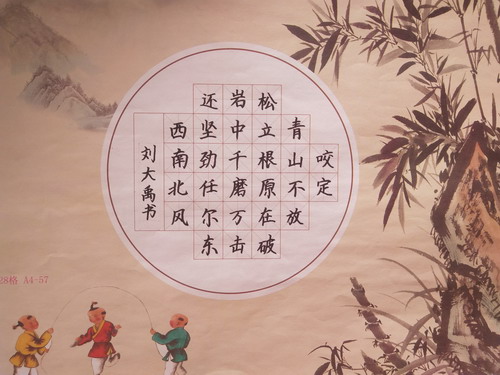 咬定
青山不放
松立根原在破
岩中千磨万击
还坚劲任尔东
西南北风
刘大禹书
28格 A4-57